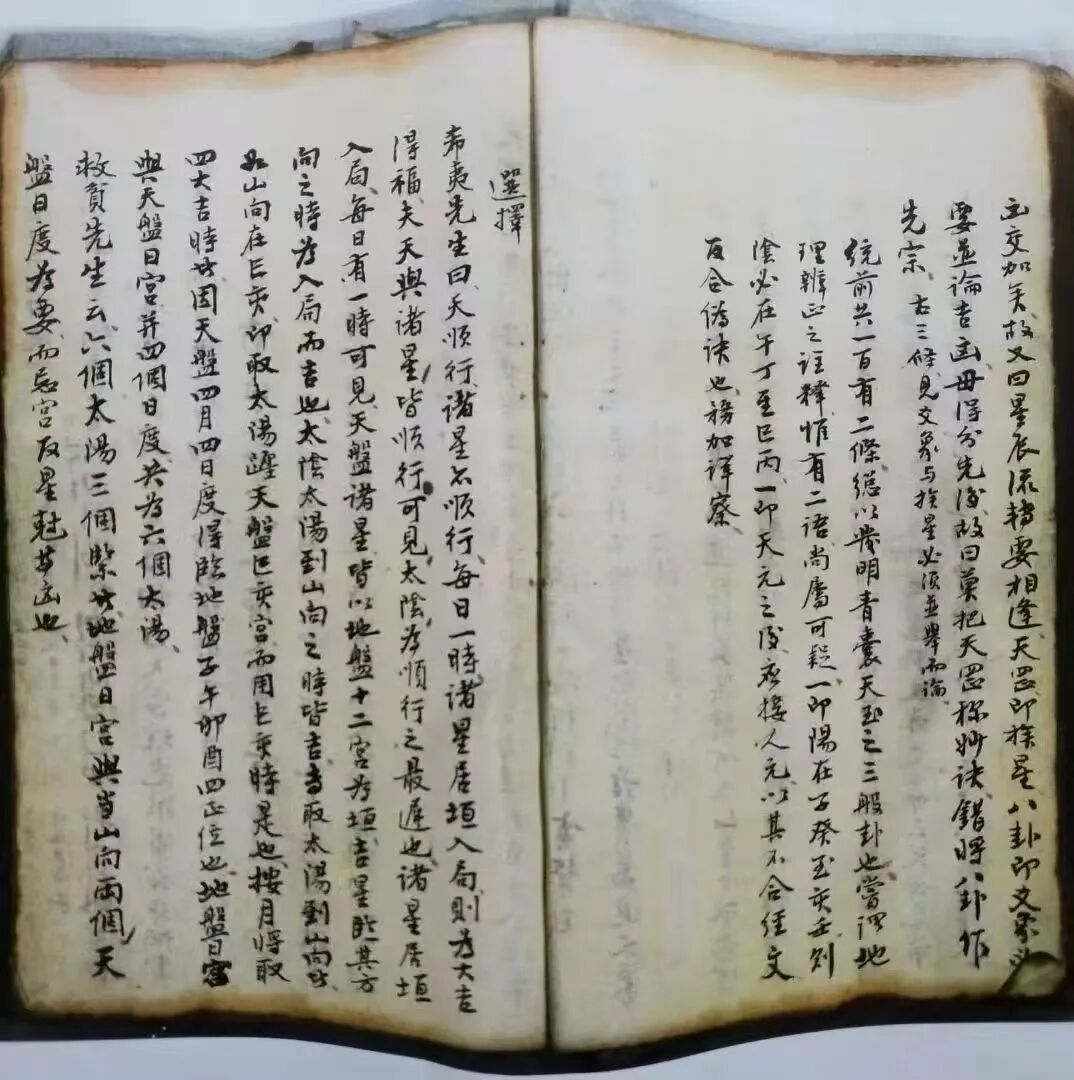 交加矣故又曰星辰流轉要相逢天罡即挨星八卦即爻象
要並論吉凶毋得分先後故曰莫把天罡称妙訣錯將八卦作
先宗、右三條見爻象与挨星必須並舉而論、
統前共一百有二條總以發明青囊天玉之三般卦也嘗謂地
理辨正之註釋惟有二語尚屬可疑一即陽在子癸至亥壬則
陰必在午丁至巳丙一即天元之後应接人元以其不合經文
反合偽訣也務加詳察、
選擇
希夷先生曰天順行諸星不順行、每日一時諸星居垣入局則為大吉
得福、夫天與諸星皆順行可見太陰本順行之最遲也、諸星居垣
入局、每日有一時可見天盤諸星皆以地盤十二宮為垣吉星臨其方
向之時為入局而吉也太陰太陽到山向之時皆吉專取太陽到山向
如山向在巳亥、即取太陽躔天盤巳亥宮而用巳亥時是也、按月將取
四大吉時皆因天盤四月四日度得臨地盤子午卯酉四正位也、地盤日宮
與天盤日宮并四個日度共為六個太陽、
救貧先生云六個太陽三個緊皆地盤日宮與當山向兩個天
盤日度為要、而忌宮反星尅其凶也、